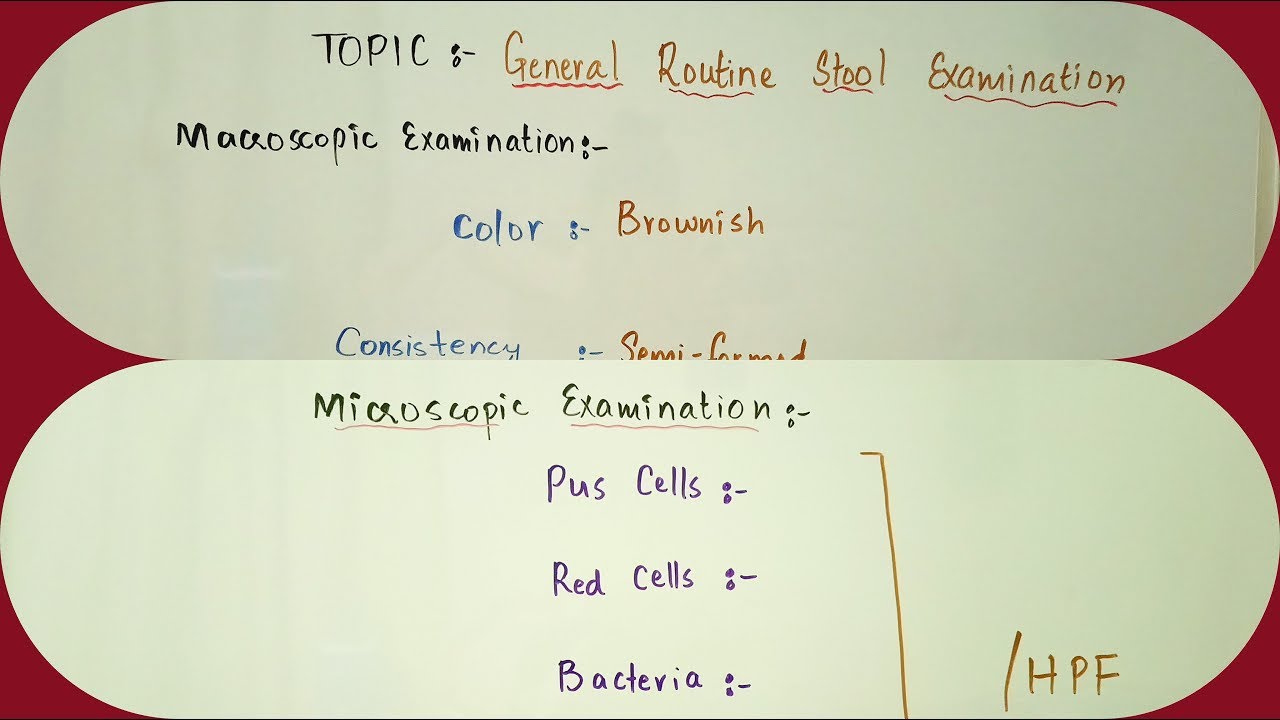 TOPIC :- General Routine Stool Examination
Macroscopic Examination:-
Color :- Brownish
Consistency :- Semi-formed
Microscopic Examination:-
Pus Cells :-
Red Cells :-
Bacteria :-
/HPF